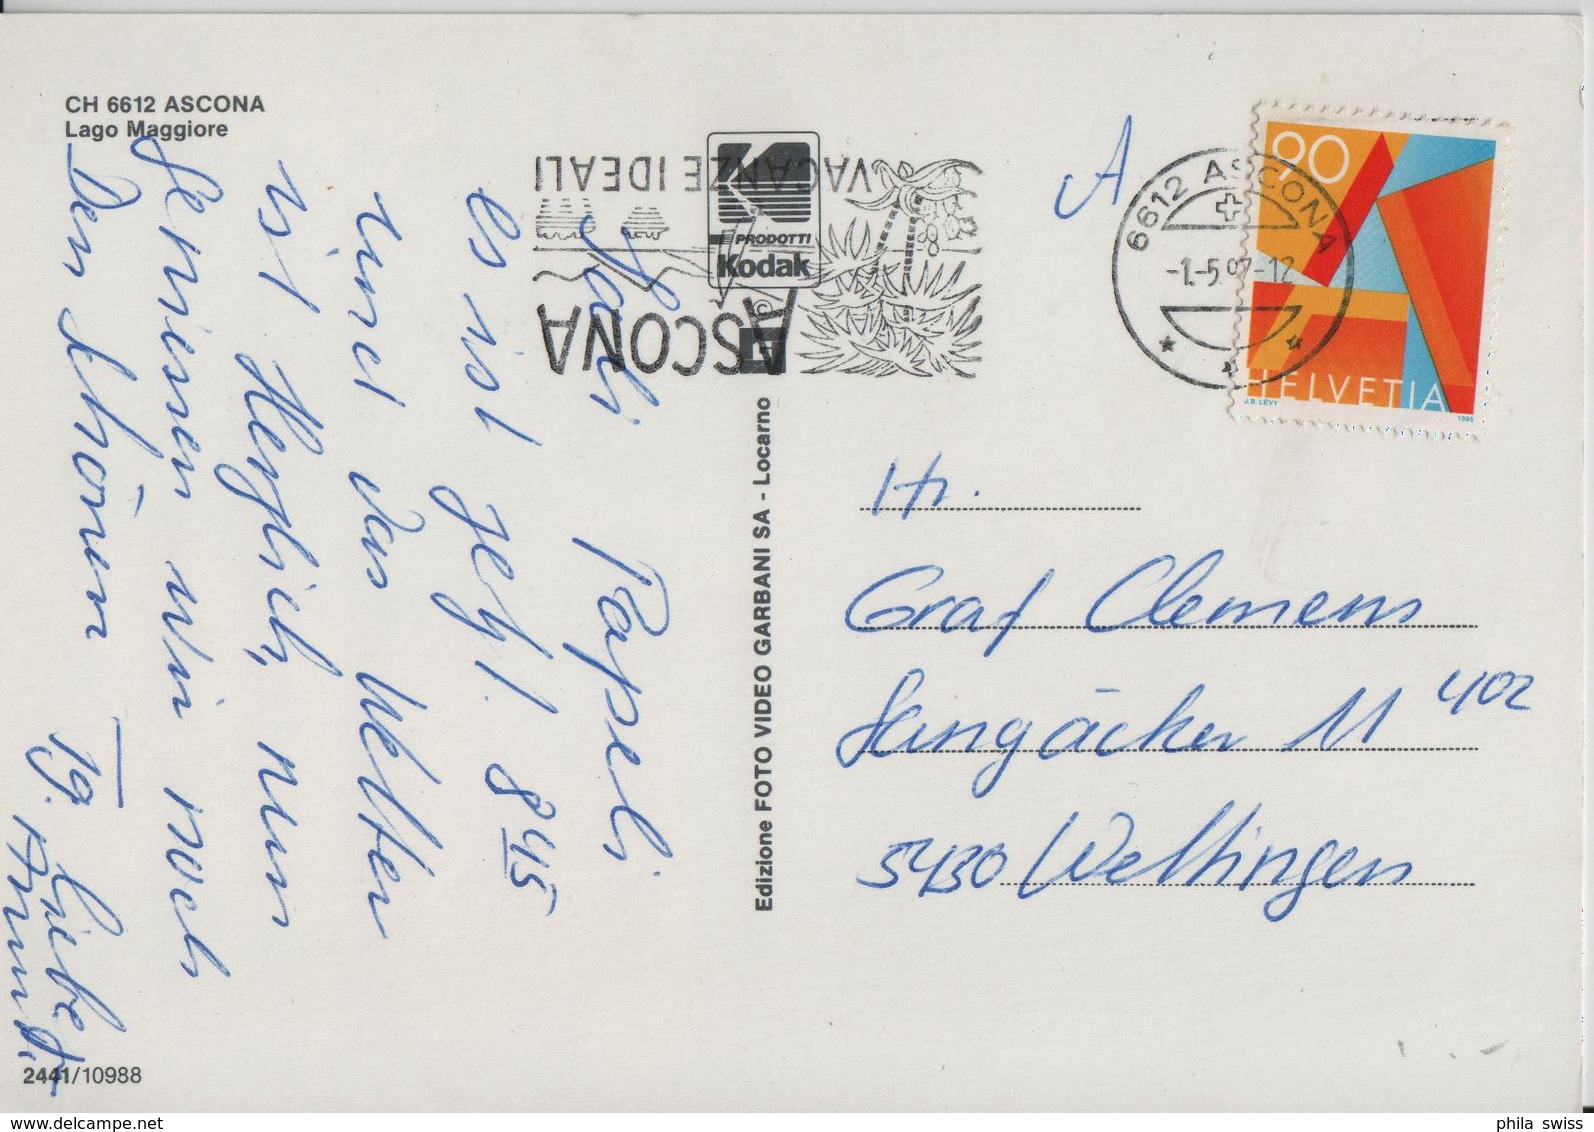 CH 6612 ASCONA
Lago Maggiore
VACANZE IDEALI
PRODOTTI
Kodak
ASCONA
A
6612 ASCONA
-1.-5.97-12
90
HELVETIA
J.B. LÉVY
1995
Papeli
es ist jetzt. 8 45
und das Wetter
ist Herrlich, nun
geniessen wir noch
Den schönen
19.
Liebe
Edizione FOTO VIDEO GARBANI SA - Locarno
Hr.
Graf Clemens
Langäcker 11 402
5430 Wettingen
2441/10988
phila swiss